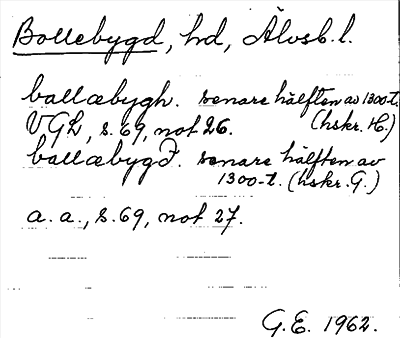 Bollebygd, hd, Älvsb. l.
ballæbygh. senare hälften av 1300-t.
VGL, s. 69, not 26. (hskr. H.)
ballæbygd. senare hälften av
1300-t. (hskr. G.)
a. a., s. 69, not 27.
G.E. 1962.